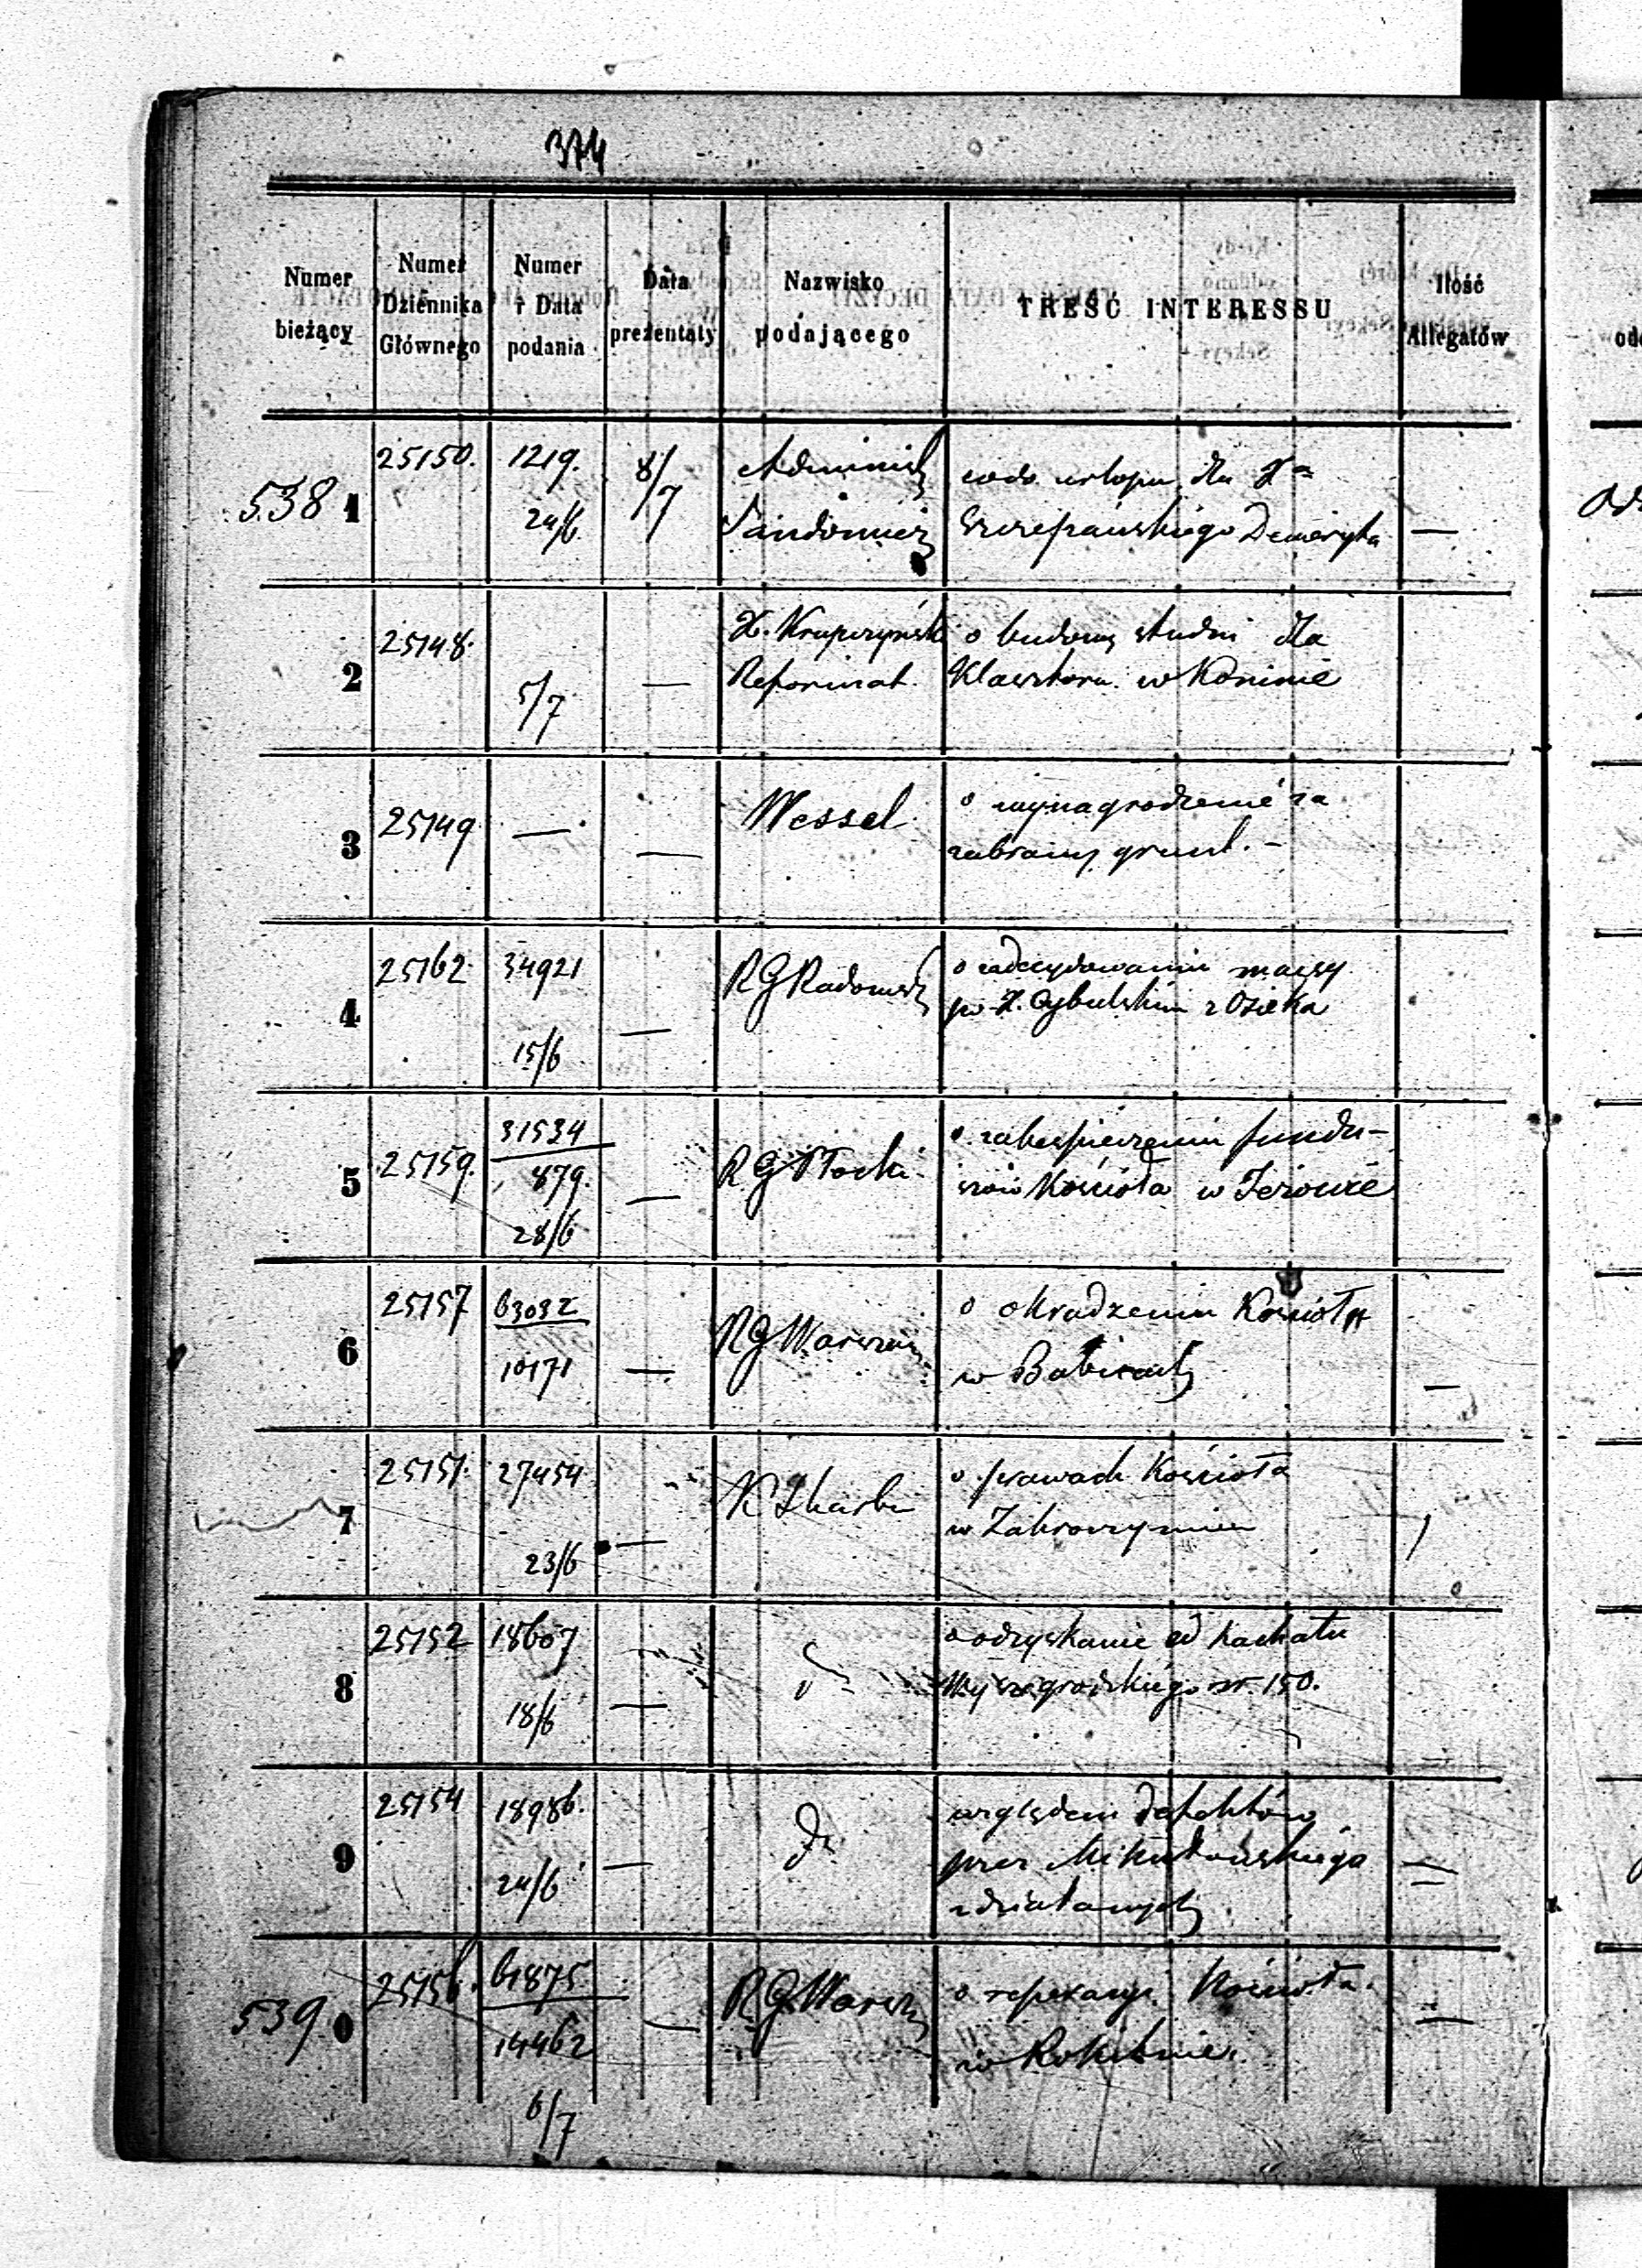 374
Numer bieżący
Numer Dziennika Głównego
Numer i Data podania
Data prezentaty
Nazwisko podającego
TREŚĆ INTERESSU
Ilość Allegatów
5381 25150. 1219. 24/6. 8/7 Administ Sandomier
codo urlopu dla X
Szczepańskiego Demeryta —
2 25148. 5/7 — X. Krupczyński Reformat.
o budowę studni dla
Klasztoru w Koninie
3 25149 — — Wessel
o wynagrodzenie za
zabrany grunt. –
4 25162 34921 15/6 — RG Radomsk
o zadecydowaniu massy
po X. Cybulskim z Osieka
5 25159. 31534 879. 28/6 — RG Płocki
o zabespieczeniu fundu-
szów Kościoła w Jeżowie
6 25157 63032 10171 — RG Warszaw
o okradzeniu Kościoła
w Babicach —
7 25151. 27454 23/6 — K Skarbu
o prawach Kościoła
w Zakroczymiu
8 25152 18607 18/6 —
o odzyskanie od Kachału
Wyszogrodzkiego sr. 150.
9 25154 18986. 24/6 — do
względem defektów
przez Mikułowskiego
zdziałanych —
539 0 25156. 61875 14462 6/7 — RG Warsz
o reperacyi Kościoła
w Rokitnie. —